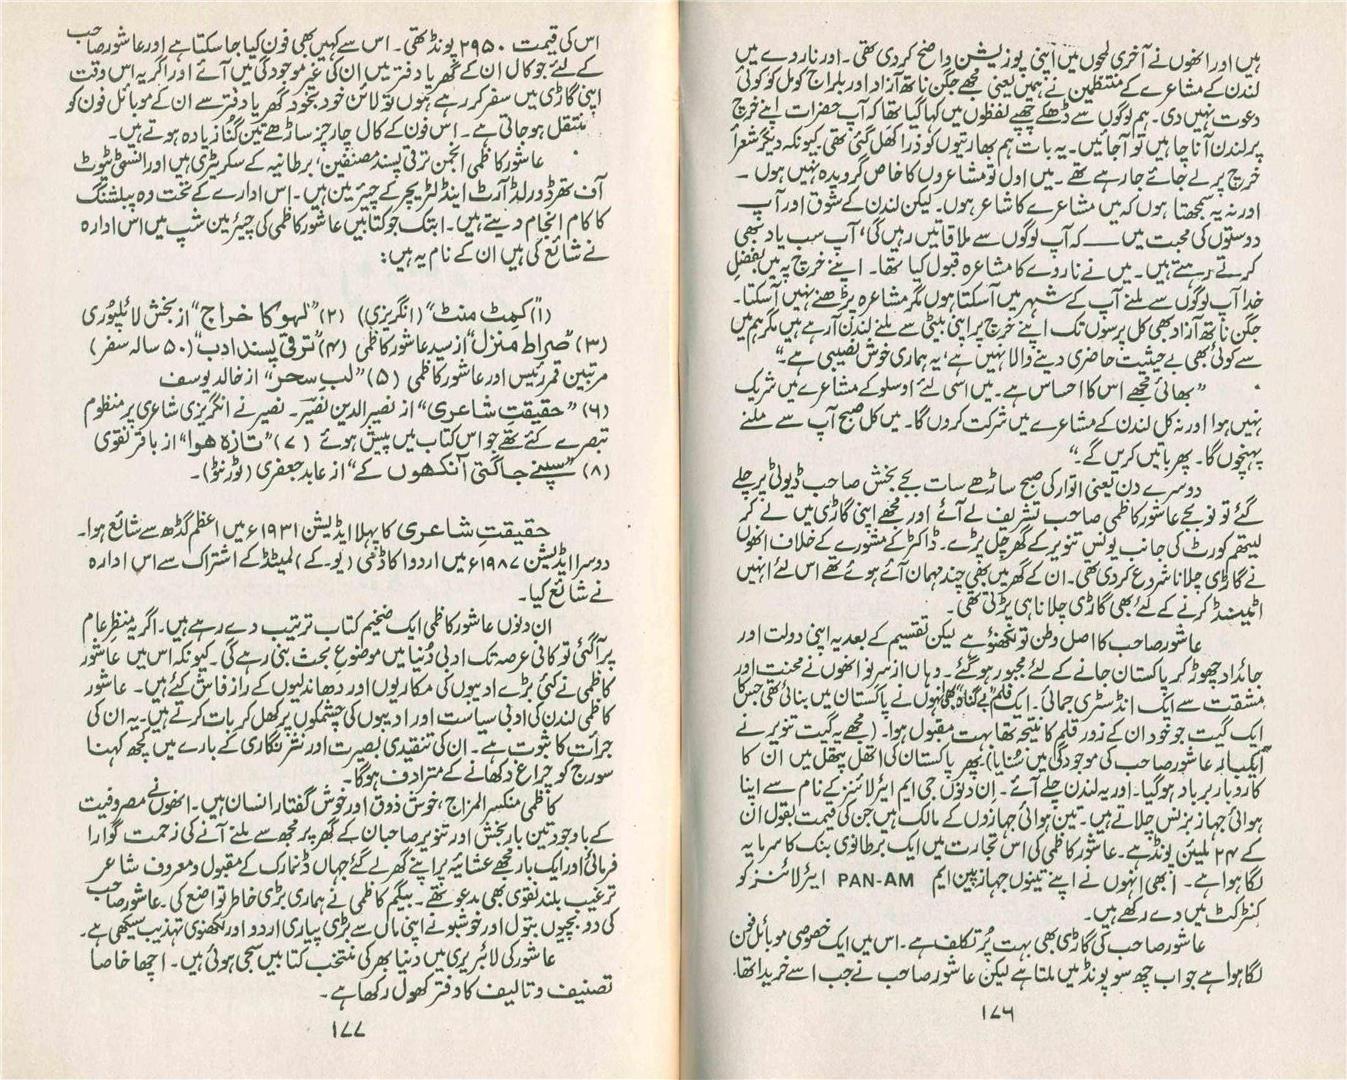 ہیں اور انھوں نے آخری لمحوں میں اپنی پوزیشن واضح کر دی تھی۔ اور ناروے میں
لندن کے مشاعرے کے منتظمین نے ہمیں یعنی مجھے جگن ناتھ آزاد اور بلراج کومل کو کوئی
دعوت نہیں دی۔ ہم لوگوں سے ڈھکے چھپے لفظوں میں کہا گیا تھا کہ آپ حضرات اپنے خرچ
پر لندن آنا چاہیں تو آجائیں۔ یہ بات ہم بھارتیوں کو ذرا کھل گئی تھی کیونکہ دیگر شعراً
خرچ پر لے جائے جا رہے تھے۔ میں اول تو مشاعروں کا خاص گرویدہ نہیں ہوں۔
اور نہ یہ سمجھتا ہوں کہ میں مشاعرے کا شاعر ہوں۔ لیکن لندن کے شوق اور آپ
دوستوں کی محبت میں ــــ کہ آپ لوگوں سے ملاقاتیں رہیں گی، آپ سب یاد بھی
کرتے رہتے ہیں۔ میں نے ناروے کا مشاعرہ قبول کیا تھا۔ اپنے خرچ پہ میں بفضلِ
خدا آپ لوگوں سے ملنے آپ کے شہر میں آسکتا ہوں مگر مشاعرہ پڑھنے نہیں آسکتا۔
جگن ناتھ آزاد بھی کل پرسوں تک اپنے خرچ پر اپنی بیٹی سے ملنے لندن آرہے ہیں مگر ہم میں
سے کوئی بھی بے حیثیت حاضری دینے والا نہیں ہے، یہ ہماری خوش نصیبی ہے۔“
”بھائی مجھے اس کا احساس ہے۔ میں اسی لئے اوسلو کے مشاعرے میں شریک
نہیں ہوا اور نہ کل لندن کے مشاعرے میں شرکت کروں گا۔ میں کل صبح آپ سے ملنے
پہنچوں گا۔ پھر باتیں کریں گے۔“
دوسرے دن یعنی اتوار کی صبح ساڑھے سات بجے بخش صاحب ڈیوٹی پر چلے
گئے تو نو بجے عاشور کاظمی صاحب تشریف لے آئے اور مجھے اپنی گاڑی میں لے کر
لیتھم کورٹ کی جانب یونس تنویر کے گھر چل پڑے۔ ڈاکٹر کے مشورے کے خلاف انھوں
نے گاڑی چلانا شروع کر دی تھی۔ ان کے گھر میں بھی چند مہمان آئے ہوئے تھے اس لئے انہیں
اٹینڈ کرنے کے لئے بھی گاڑی چلانا ہی پڑتی تھی۔
عاشور صاحب کا اصل وطن تو لکھنؤ ہے لیکن تقسیم کے بعد یہ اپنی دولت اور
جائداد چھوڑ کر پاکستان جانے کے لئے مجبور ہو گئے۔ وہاں از سرِ نو انھوں نے محنت اور
مشقت سے ایک انڈسٹری جمائی۔ ایک فلم ”بے گناہ“ بھی انہوں نے پاکستان میں بنائی تھی جس کا
ایک گیت جو خود ان کے زور قلم کا نتیجہ تھا بہت مقبول ہوا۔ (مجھے یہ گیت تنویر نے
ایکبار عاشور صاحب کی موجودگی میں سُنایا) پھر پاکستان کی اتھل پتھل میں ان کا
کاروبار برباد ہو گیا۔ اور یہ لندن چلے آئے۔ ان دنوں جی ایم ایئر لائنز کے نام سے اپنا
ہوائی جہاز بزنس چلاتے ہیں۔ تین ہوائی جہازوں کے مالک ہیں جن کی قیمت بقول ان
کے ۲۴ ملین پونڈ ہے۔ عاشور کاظمی کی اس تجارت میں ایک برطانوی بنک کا سرمایہ
لگا ہوا ہے۔ ابھی انہوں نے اپنے تینوں جہاز پین ایم PAN-AM ایئر لائنز کو
کنٹرکٹ میں دے رکھے ہیں۔
عاشور صاحب کی گاڑی بھی بہت پُر تکلف ہے۔ اس میں ایک خصوصی موبائل فون
لگا ہوا ہے جو اب چھ سو پونڈ میں ملتا ہے لیکن عاشور صاحب نے جب اسے خریدا تھا
۱۷۶
اس کی قیمت ۲۹۵۰ پونڈ تھی۔ اس سے کہیں بھی فون کیا جا سکتا ہے اور عاشور صاحب
کے لئے جو کال ان کے گھر یا دفتر میں ان کی غیر موجودگی میں آئے اور اگر یہ اس وقت
اپنی گاڑی میں سفر کر رہے ہوں تو لائن خود بخود گھر یا دفتر سے ان کے موبائل فون کو
منتقل ہو جاتی ہے۔ اس فون کے کال چارجز ساڑھے تین گنُا زیادہ ہوتے ہیں۔
عاشور کاظمی انجمن ترقی پسند مصنفین، برطانیہ کے سکریٹری ہیں اور انسٹی ٹیوٹ
آف تھرڈ ورلڈ آرٹ اینڈ لٹریچر کے چیئرمین ہیں۔ اس ادارے کے تحت وہ پبلشنگ
کا کام انجام دیتے ہیں۔ ابتک جو کتابیں عاشور کاظمی کی چیئرمین شپ میں اس ادارہ
نے شائع کی ہیں ان کے نام یہ ہیں:
(۱) ”کمٹ منٹ“ (انگریزی) (۲) ”لہو کا خراج“ از بخش لائلپوری
(۳) ”صراط منزل“ از سید عاشور کاظمی (۴) ”ترقی پسند ادب“ (۵۰ سالہ سفر)
مرتبین قمر رئیس اور عاشور کاظمی (۵) ”لب سحر“ از خالد یوسف
(۶) ”حقیقتِ شاعری“ از نصیر الدین نصیرؔ۔ نصیر نے انگریزی شاعری پر منظوم
تبصرے کئے تھے جو اس کتاب میں پیش ہوئے (۷) ”تازہ ہوا“ از باقر نقوی
(۸) ”سپنے جاگتی آنکھوں کے“ از عابد جعفری (ٹورنٹو)۔
حقیقتِ شاعری کا پہلا ایڈیشن ۱۹۳۱ء میں اعظم گڈھ سے شائع ہوا۔
دوسرا ایڈیشن ۱۹۸۷ء میں اردو اکاڈمی (یو۔ کے) لمیٹڈ کے اشتراک سے اس ادارہ
نے شائع کیا۔
ان دنوں عاشور کاظمی ایک ضخیم کتاب ترتیب دے رہے ہیں۔ اگر یہ منظرِ عام
پر آگئی تو کافی عرصہ تک ادبی دُنیا میں موضوعِ بحث بنی رہے گی۔ کیونکہ اس میں عاشور
کاظمی نے کئی بڑے ادیبوں کی مکاریوں اور دھاندلیوں کے راز فاش کئے ہیں۔ عاشور
کاظمی لندن کی ادبی سیاست اور ادیبوں کی چشمکوں پر کھل کر بات کرتے ہیں۔ یہ ان کی
جرأت کا ثبوت ہے۔ ان کی تنقیدی بصیرت اور نثر نگاری کے بارے میں کچھ کہنا
سورج کو چراغ دکھانے کے مترادف ہوگا۔
کاظمی منکسر المزاج، خوش ذوق اور خوش گفتار انسان ہیں۔ انھوں نے مصروفیت
کے باوجود تین بار بخش اور تنویر صاحبان کے گھر پر مجھ سے ملنے آنے کی زحمت گوارا
فرمائی اور ایک بار مجھے عشائیہ پر اپنے گھر لے گئے جہاں ڈنمارک کے مقبول و معروف شاعر
ترغیب بلند نقوی بھی مدعو تھے۔ بیگم کاظمی نے ہماری بڑی خاطر تواضع کی۔ عاشور صاحب
کی دو بچیوں بتول اور خوشبو نے اپنی ماں سے بڑی پیاری اردو اور لکھنوی تہذیب سیکھی ہے۔
عاشور کی لائبریری میں دنیا بھر کی منتخب کتابیں سجی ہوئی ہیں۔ اچھا خاصا
تصنیف و تالیف کا دفتر کھول رکھا ہے۔
۱۷۷